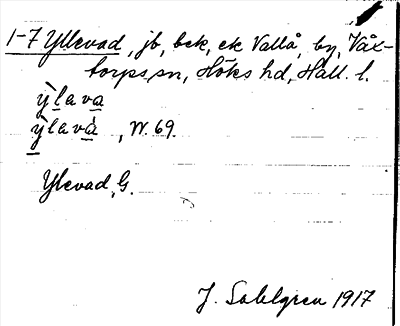 1-7 Yllevad, jb, bck, ek Vallå, by, Våx-
torps sn, Höks hd, Hall. l.
ỳlava
ỳlavà, W. 69.
Ylevad, G.
J. Sahlgren 1917